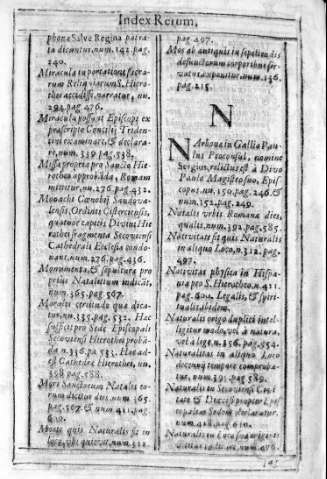 Index Rerum,
phone Salve Regina patra-
ta dicuntur, num. 142. pag.
240.
Miracula in portatione sacra-
rum Reliquiarum S. Hiero-
thei accidisse, narratur, nu.
292. pag. 476.
Miracula possunt Episcopi ex
præscripto Concilij Triden-
tini examinare, & declara-
re, num. 339. pag. 538.
Missa propria pro Sancto Hie-
rotheo approbata, Romam
mittitur, nu. 276. pag. 432.
Monachi Cœnobij Sandova-
lensis, Ordinis Cisterciensis,
quatuor capitis Divi Hie-
rothei fragmenta Secoviensi
Cathedrali Ecclesiæ condo-
nant, num. 276. pag. 436.
Monumenta, & sepultura pro
prius Natalitium indicat,
num. 365. pag. 567.
Moralis certitudo quæ dica-
tur, nu. 335. pag. 532. Hac
suspicit pro Sede Episcopali
Secoviensi Hierotheus proba-
da n. 336. pa. 533. Hac ad-
est Cathedræ Hierothei, nu.
338. pag. 538.
More Sanctorum Natales eo-
rum dicitur dies, num. 365.
pag. 567. & num. 411. pag.
620.
pag. 497.
Mos ab antiquis in sepeliendis
defunctorum corporibus ser-
vatus expanitur, num. 136.
pag. 215.
N
Narbona in Gallia Pau-
lus Proconsul, nomine
Sergius, relictus est à Divo
Paulo Magistro suo, Epis-
copus, nu. 150. pag. 246. &
num. 152. pag. 249.
Natalis urbis Romana dies,
qualis, num. 392. pag. 585.
Nativitate sit quis Naturalis
in aliquo Loco, n. 312. pag.
497.
Nativitas physica in Hispa-
nia pro S. Hierotheo, n. 411.
pag. 600, Legalis, & spiri-
tualis ibidem.
Naturalis origo dupliciter in-
telligitur modo, vel à natura,
vel à lege, n. 356. pag. 554.
Naturalitas in aliquo Loco
decennij tempore comproba-
tur, num. 391. pag. 589.
Naturalis in Secoviensi Civi-
tate & Diœcesi propter Epis-
copalem Sedem declaratur,
num. 418. pag. 610.